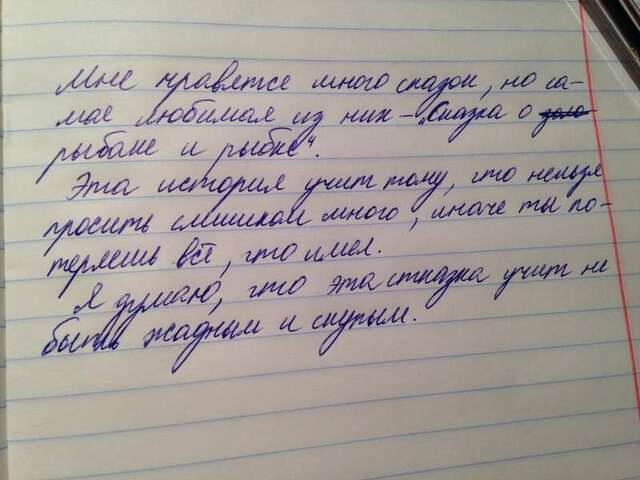 Мне нравятся много сказок, но са-
мая любимая из них – „Сказка о
рыбаке и рыбке“.
Эта история учит тому, что нельзя
просить слишком много, иначе ты по-
теряешь всё, что имел.
Я думаю, что эта сказка учит не
быть жадным и скупым.